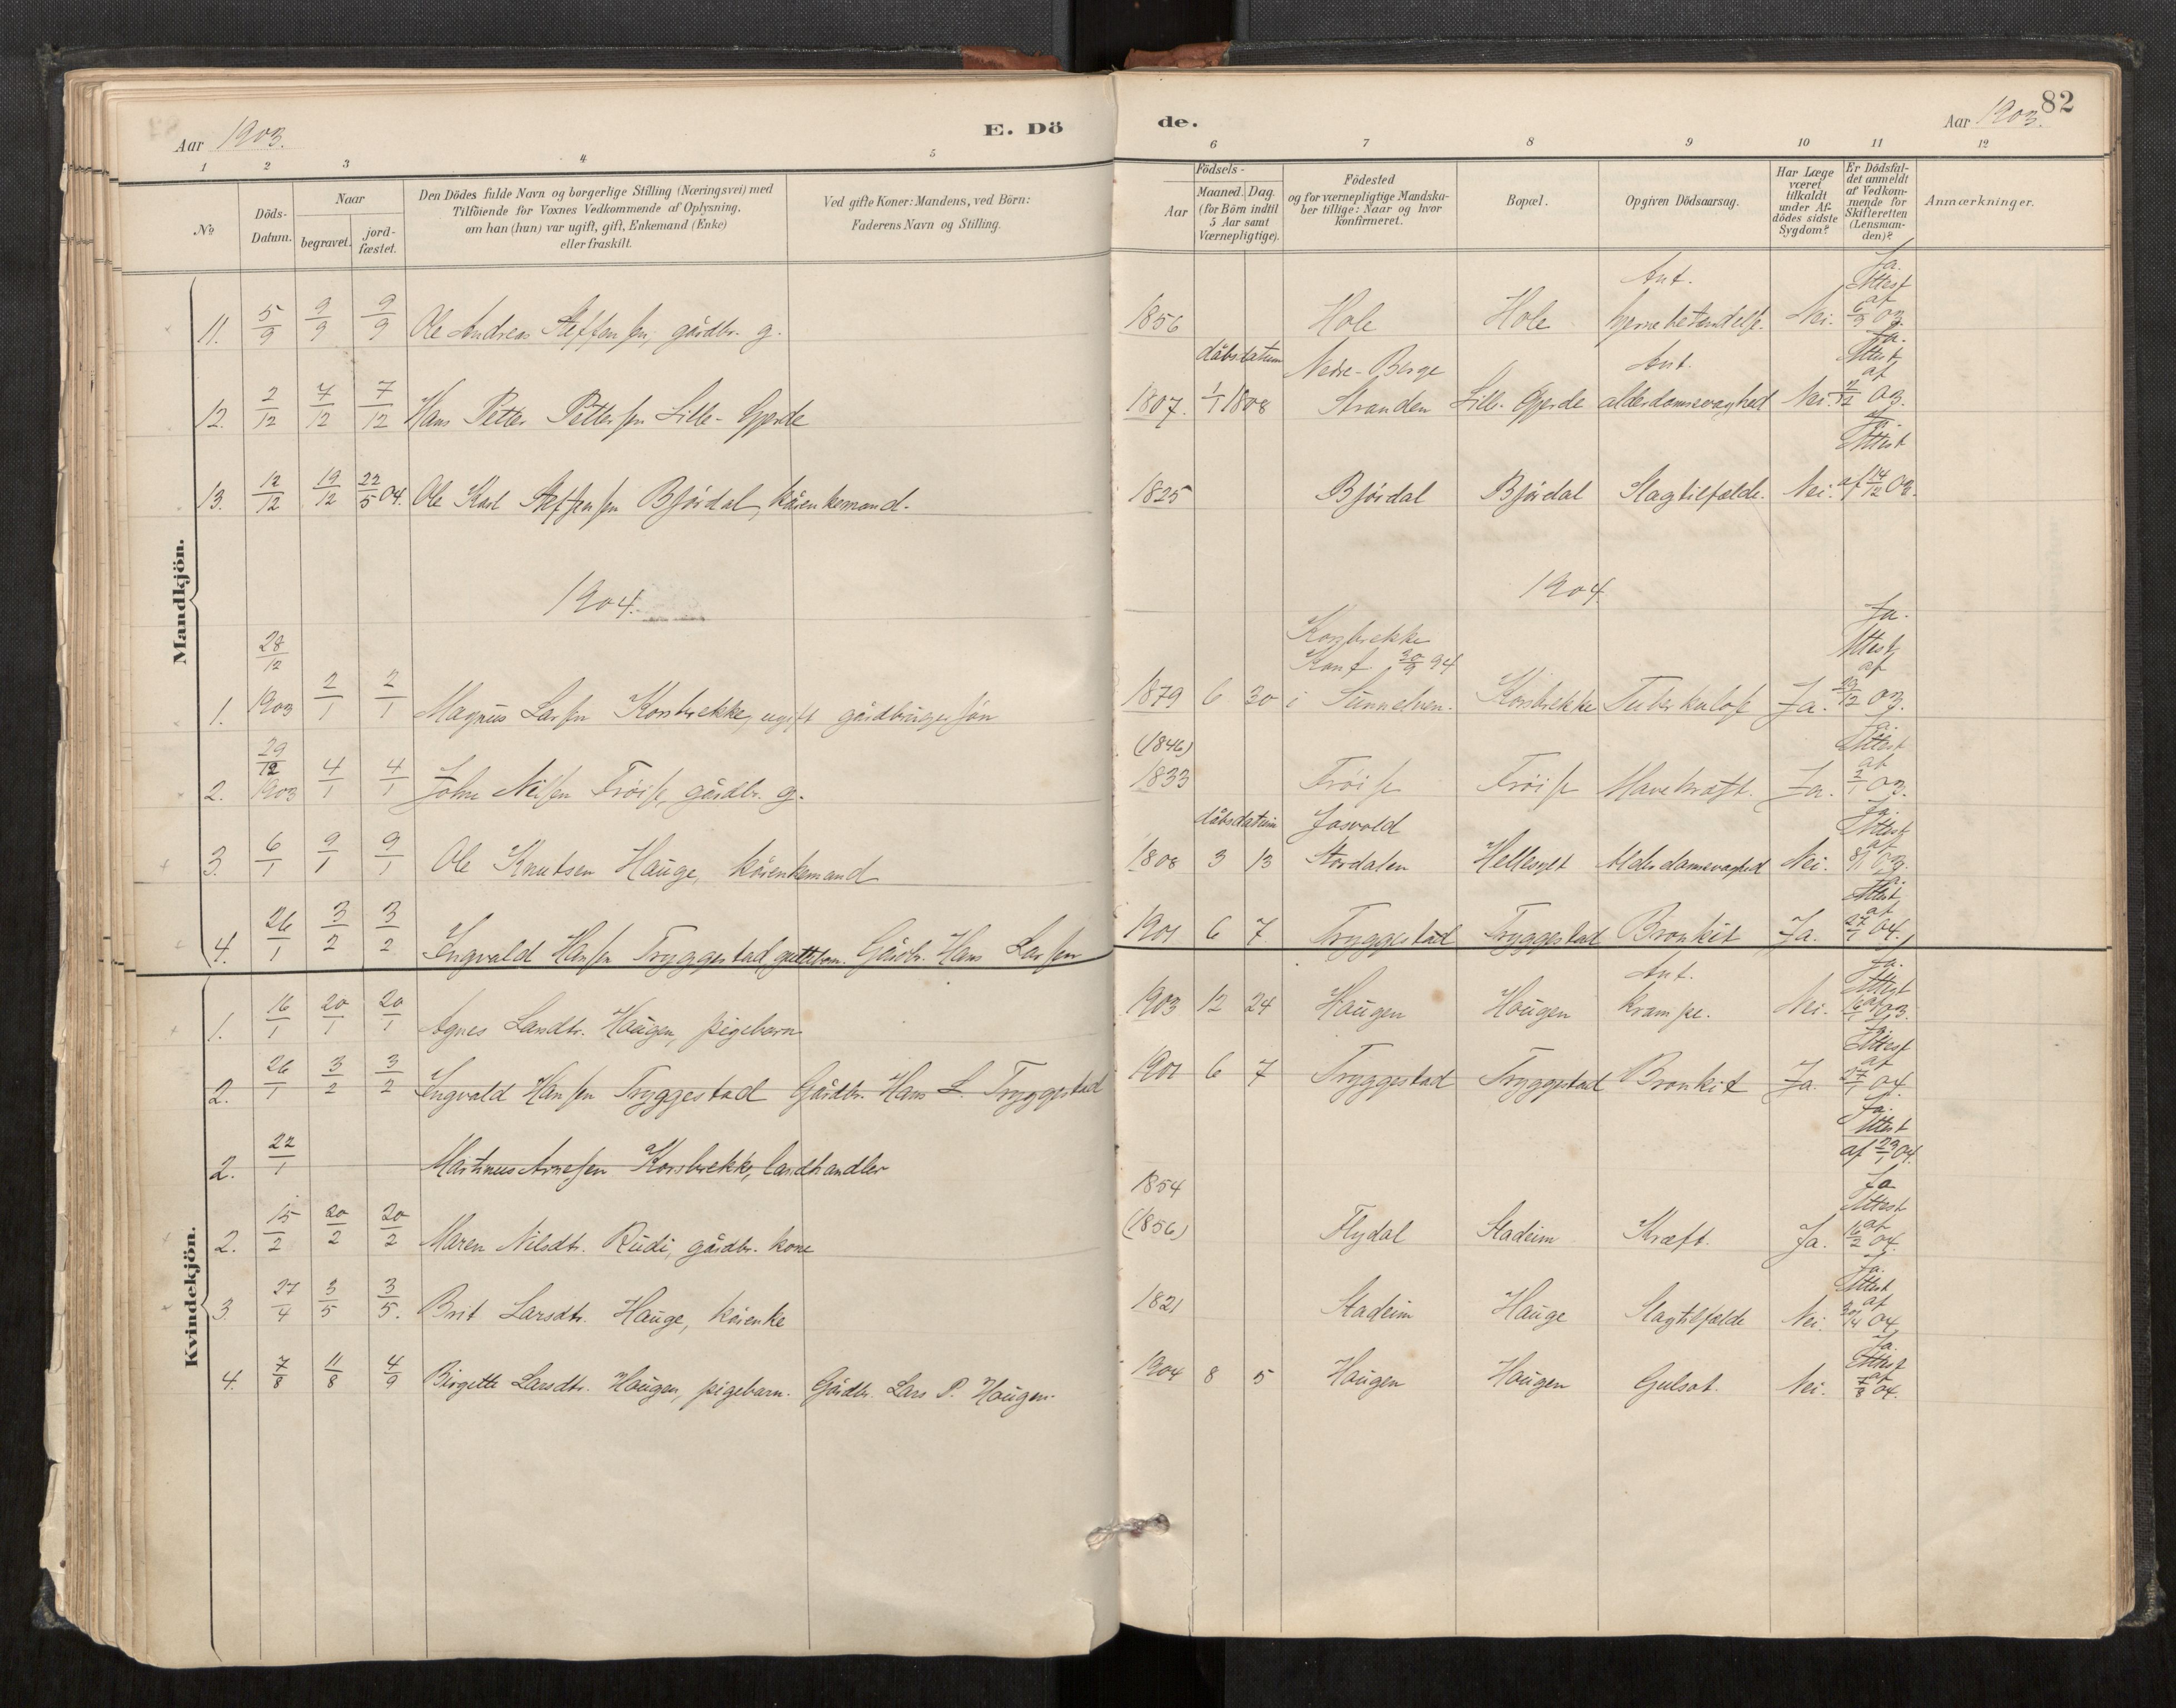 82
Aar 1903. E. Dö de. Aar 1903.
1 2 3 4 5 6 7 8 9 10 11 12
No
Döds-Datum.
Naar
begravet.
jord-fæstet.
Den Dödes fulde Navn og borgerlige Stilling (Næringsvei) med
Tilföiende for Voxnes Vedkommende af Oplysning,
om han (hun) var ugift, gift, Enkemand (Enke)
eller fraskilt.
Ved gifte Koner: Mandens, ved Börn:
Faderens Navn og Stilling.
Födsels-
Aar
Maaned. Dag.
(for Börn indtil
5 Aar samt
Værnepligtige).
Födested
og for værnepligtige Mandska-
ber tillige: Naar og hvor
konfirmeret.
Bopæl.
Opgiven Dödsaarsag.
Har Læge
været
tilkaldt
under Af-
dödes sidste
Sygdom?
Er Dödsfal-
det anmeldt
af Vedkom-
mende for
Skifteretten
(Lensman-
den)?
Anmærkninger.
Mandkjön.
11. 5/9 9/9 9/9 Ole Andreas Steffensen, gårdbr. g. 1856 Hole Hole Ant. hjernebetændelse. Nei. Ja. Attest af 6/9 03.
12. 2/12 7/12 7/12 Hans Petter Pettersen Lille-Gjerde 1807. dåbsdatum 1/1 1808 Nedre-Berge Stranden Lille-Gjerde Ant. alderdomssvaghed Nei. Ja. Attest af 2/12 03.
13. 12/12 19/12 22/5 04. Ole Karl Steffensen Bjørdal, kårenkemand. 1825 Bjørdal Bjørdal Slagtilfælde. Nei. Ja. Attest af 14/12 03.
1904. 1904.
1. 28/12 1903 2/1 2/1 Magnus Larsen Korsbrekke, ugift gårdbrugersøn 1879 6 30 Korsbrekke Konf. 30/9 94 i Sunnelven. Korsbrekke Tuberkulose Ja. Ja. Attest af 29/12 03.
2. 29/12 1903 4/1 4/1 John Nilsen Frøise, gårdbr. g. (1846) 1833 Frøise Frøise Mavekræft. Ja. Ja. Attest af 2/1 03.
3. 6/1 9/1 9/1 Ole Knutsen Hauge, kårenkemand 1808 dåbsdatum 3 13 Stordalen Hellesylt Alderdomssvaghed Nei. Ja. Attest af 8/1 03.
4. 26/1 3/2 3/2 Ingvald Hansen Tryggestad guttebarn. Gårdbr. Hans Larsen 1901 6 7 Tryggestad Tryggestad Bronkit Ja. Ja. Attest af 27/1 04.
Kvindekjön.
1. 16/1 20/1 20/1 Agnes Larsdtr. Haugen, pigebarn 1903 12 24 Haugen Haugen Ant. krampe. Nei. Ja. Attest af 16/1 03.
2. 26/1 3/2 3/2 Ingvald Hansen Tryggestad Gårdbr. Hans L. Tryggestad 1901 6 7 Tryggestad Tryggestad Bronkit Ja. Ja. Attest af 27/1 04.
2. 22/1 Martinus Arnesen Korsbrekke, landhandler Ja. Attest af 23/1 04.
2. 15/2 20/2 20/2 Maren Nilsdtr. Rudi, gårdbr. kone 1854 (1856) Flydal Stadeim Kræft. Ja. Ja Attest af 16/2 04.
3. 27/4 3/5 3/5. Brit Larsdtr. Hauge, kårenke 1821 Stadeim Hauge Slagtilfælde Nei. Ja. Attest af 30/4 04.
4. 7/8 11/8 4/9 Birgitte Larsdtr. Haugen, pigebarn. Gårdbr. Lars P. Haugen. 1904 8 5 Haugen Haugen Gulsot. Nei. Ja. Attest af 7/8 04.